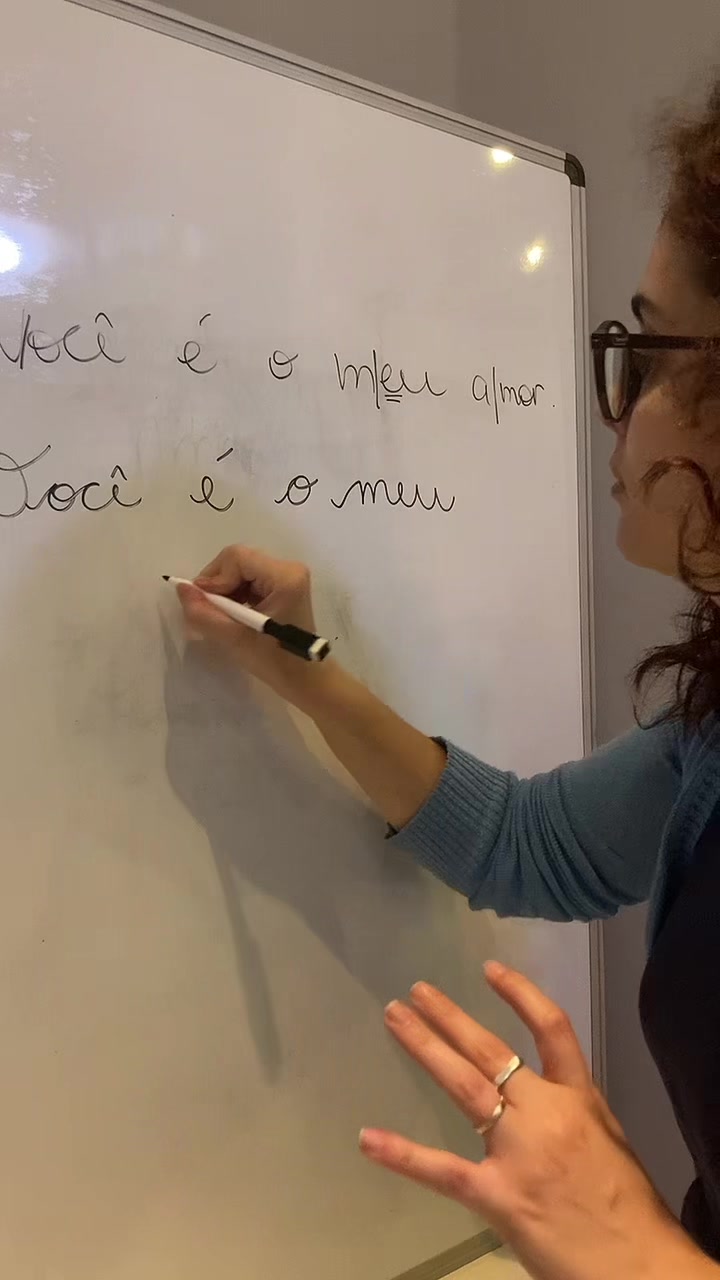 Você é o m/eu a/mor.
Você é o meu